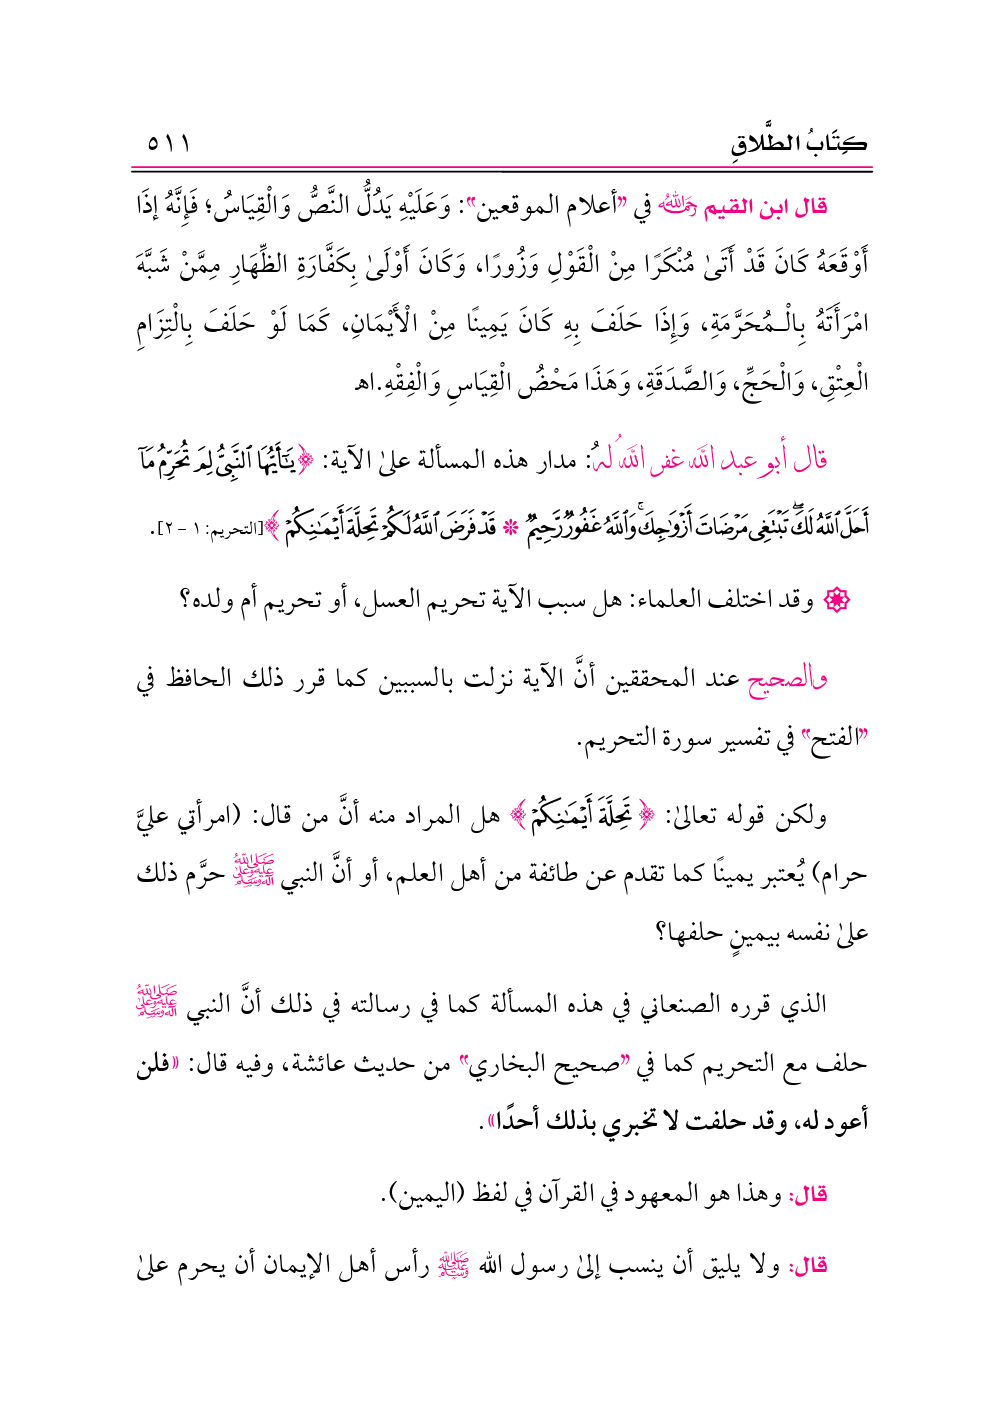 كِتَابُ الطَّلاقِ ٥١١
قال ابن القيم رَحِمَهُ اللهُ في "أعلام الموقعين": وَعَلَيْهِ يَدُلُّ النَّصُّ وَالْقِيَاسُ؛ فَإِنَّهُ إذَا
أَوْقَعَهُ كَانَ قَدْ أَتَىٰ مُنْكَرًا مِنْ الْقَوْلِ وَزُورًا، وَكَانَ أَوْلَىٰ بِكَفَّارَةِ الظِّهَارِ مِمَّنْ شَبَّهَ
امْرَأَتَهُ بِالْـمُحَرَّمَةِ، وَإِذَا حَلَفَ بِهِ كَانَ يَمِينًا مِنْ الْأَيْمَانِ، كَمَا لَوْ حَلَفَ بِالْتِزَامِ
الْعِتْقِ، وَالْحَجِّ، وَالصَّدَقَةِ، وَهَذَا مَحْضُ الْقِيَاسِ وَالْفِقْهِ.اهـ
قال أبو عبد الله غفر اللهُ لهُ: مدار هذه المسألة علىٰ الآية: ﴿يَٰٓأَيُّهَا ٱلنَّبِيُّ لِمَ تُحَرِّمُ مَآ
أَحَلَّ ٱللَّهُ لَكَۖ تَبۡتَغِي مَرۡضَاتَ أَزۡوَٰجِكَۚ وَٱللَّهُ غَفُورٞ رَّحِيمٞ * قَدۡ فَرَضَ ٱللَّهُ لَكُمۡ تَحِلَّةَ أَيۡمَٰنِكُمۡ﴾[التحريم: ١ - ٢].
۞ وقد اختلف العلماء: هل سبب الآية تحريم العسل، أو تحريم أم ولده؟
والصحيح عند المحققين أنَّ الآية نزلت بالسببين كما قرر ذلك الحافظ في
"الفتح" في تفسير سورة التحريم.
ولكن قوله تعالىٰ: ﴿تَحِلَّةَ أَيۡمَٰنِكُمۡ﴾ هل المراد منه أنَّ من قال: (امرأتي عليَّ
حرام) يُعتبر يمينًا كما تقدم عن طائفة من أهل العلم، أو أنَّ النبي صَلَّى اللهُ عَلَيْهِ وَعَلَىٰ آلِهِ وَسَلَّمَ حرَّم ذلك
علىٰ نفسه بيمينٍ حلفها؟
الذي قرره الصنعاني في هذه المسألة كما في رسالته في ذلك أنَّ النبي صَلَّى اللهُ عَلَيْهِ وَعَلَىٰ آلِهِ وَسَلَّمَ
حلف مع التحريم كما في "صحيح البخاري" من حديث عائشة، وفيه قال: «فلن
أعود له، وقد حلفت لا تخبري بذلك أحدًا».
قال: وهذا هو المعهود في القرآن في لفظ (اليمين).
قال: ولا يليق أن ينسب إلىٰ رسول الله ﷺ رأس أهل الإيمان أن يحرم علىٰ